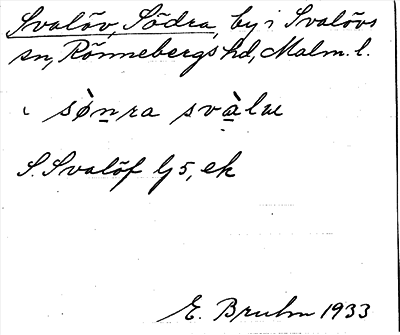 Svalöv, Södra, by i Svalövs
sn, Rönnebergs hd, Malm. l.
sø̀n̲ra svàlɯ
S. Svalöf Gs, ek
E. Bruhn 1933